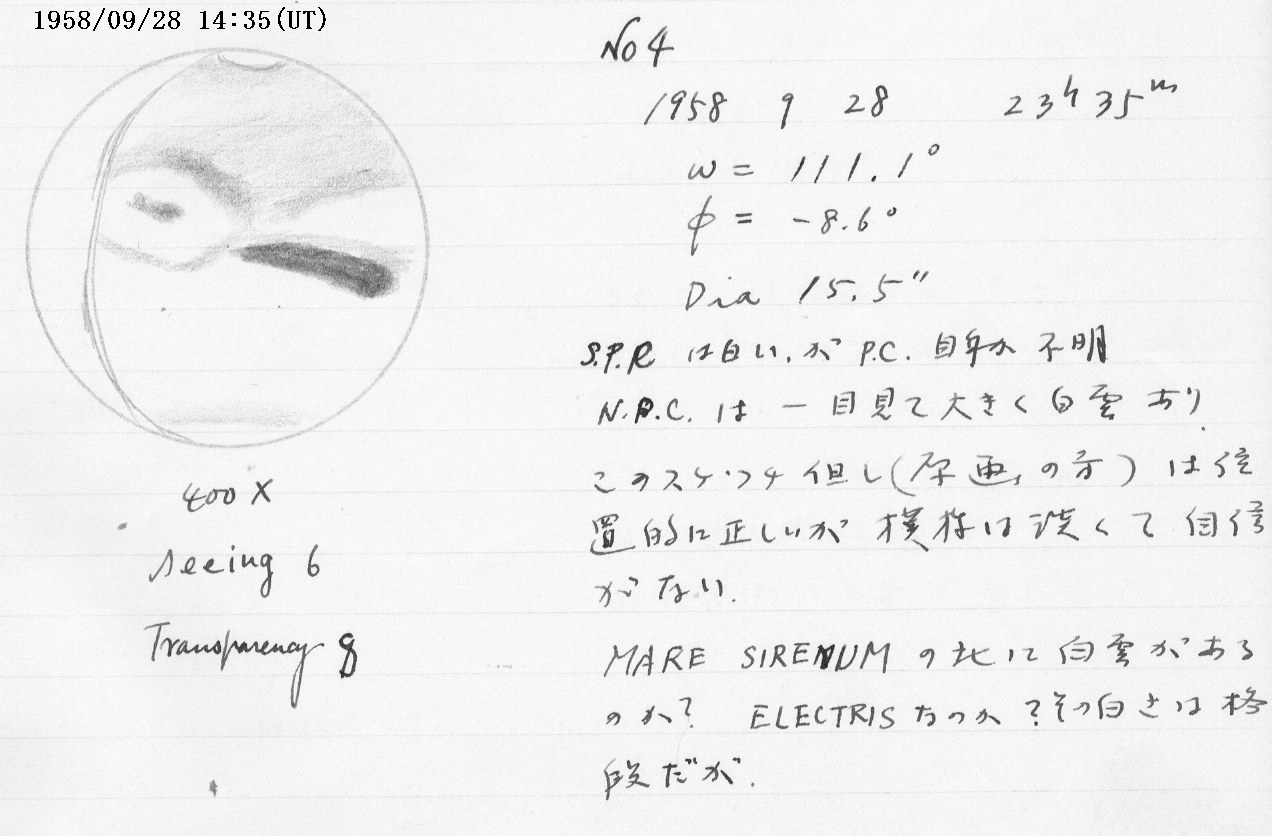 1958/09/28 14:35(UT)
No 4
1958 9 28 23h 35m
ω = 111.1°
φ = -8.6°
Dia 15.5"
S.P.R は白い、が P.C. 自身か 不明
N.P.C. は 一目見て大きく白雲あり
このスケッチ 但し(原画,の方) は位
置的に正しいが 模様は淡くて自信
がない.
MARE SIRENUM の北に白雲がある
のか? ELECTRIS なのか? その白さは格
段だが.
400 X
seeing 6
Transparency 8